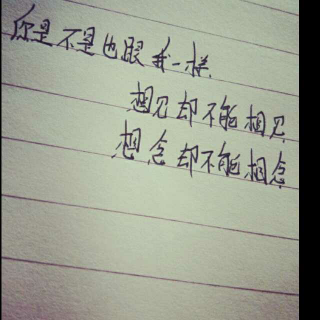 你是不是也跟我一样
想见却不能相见
想念却不能相念